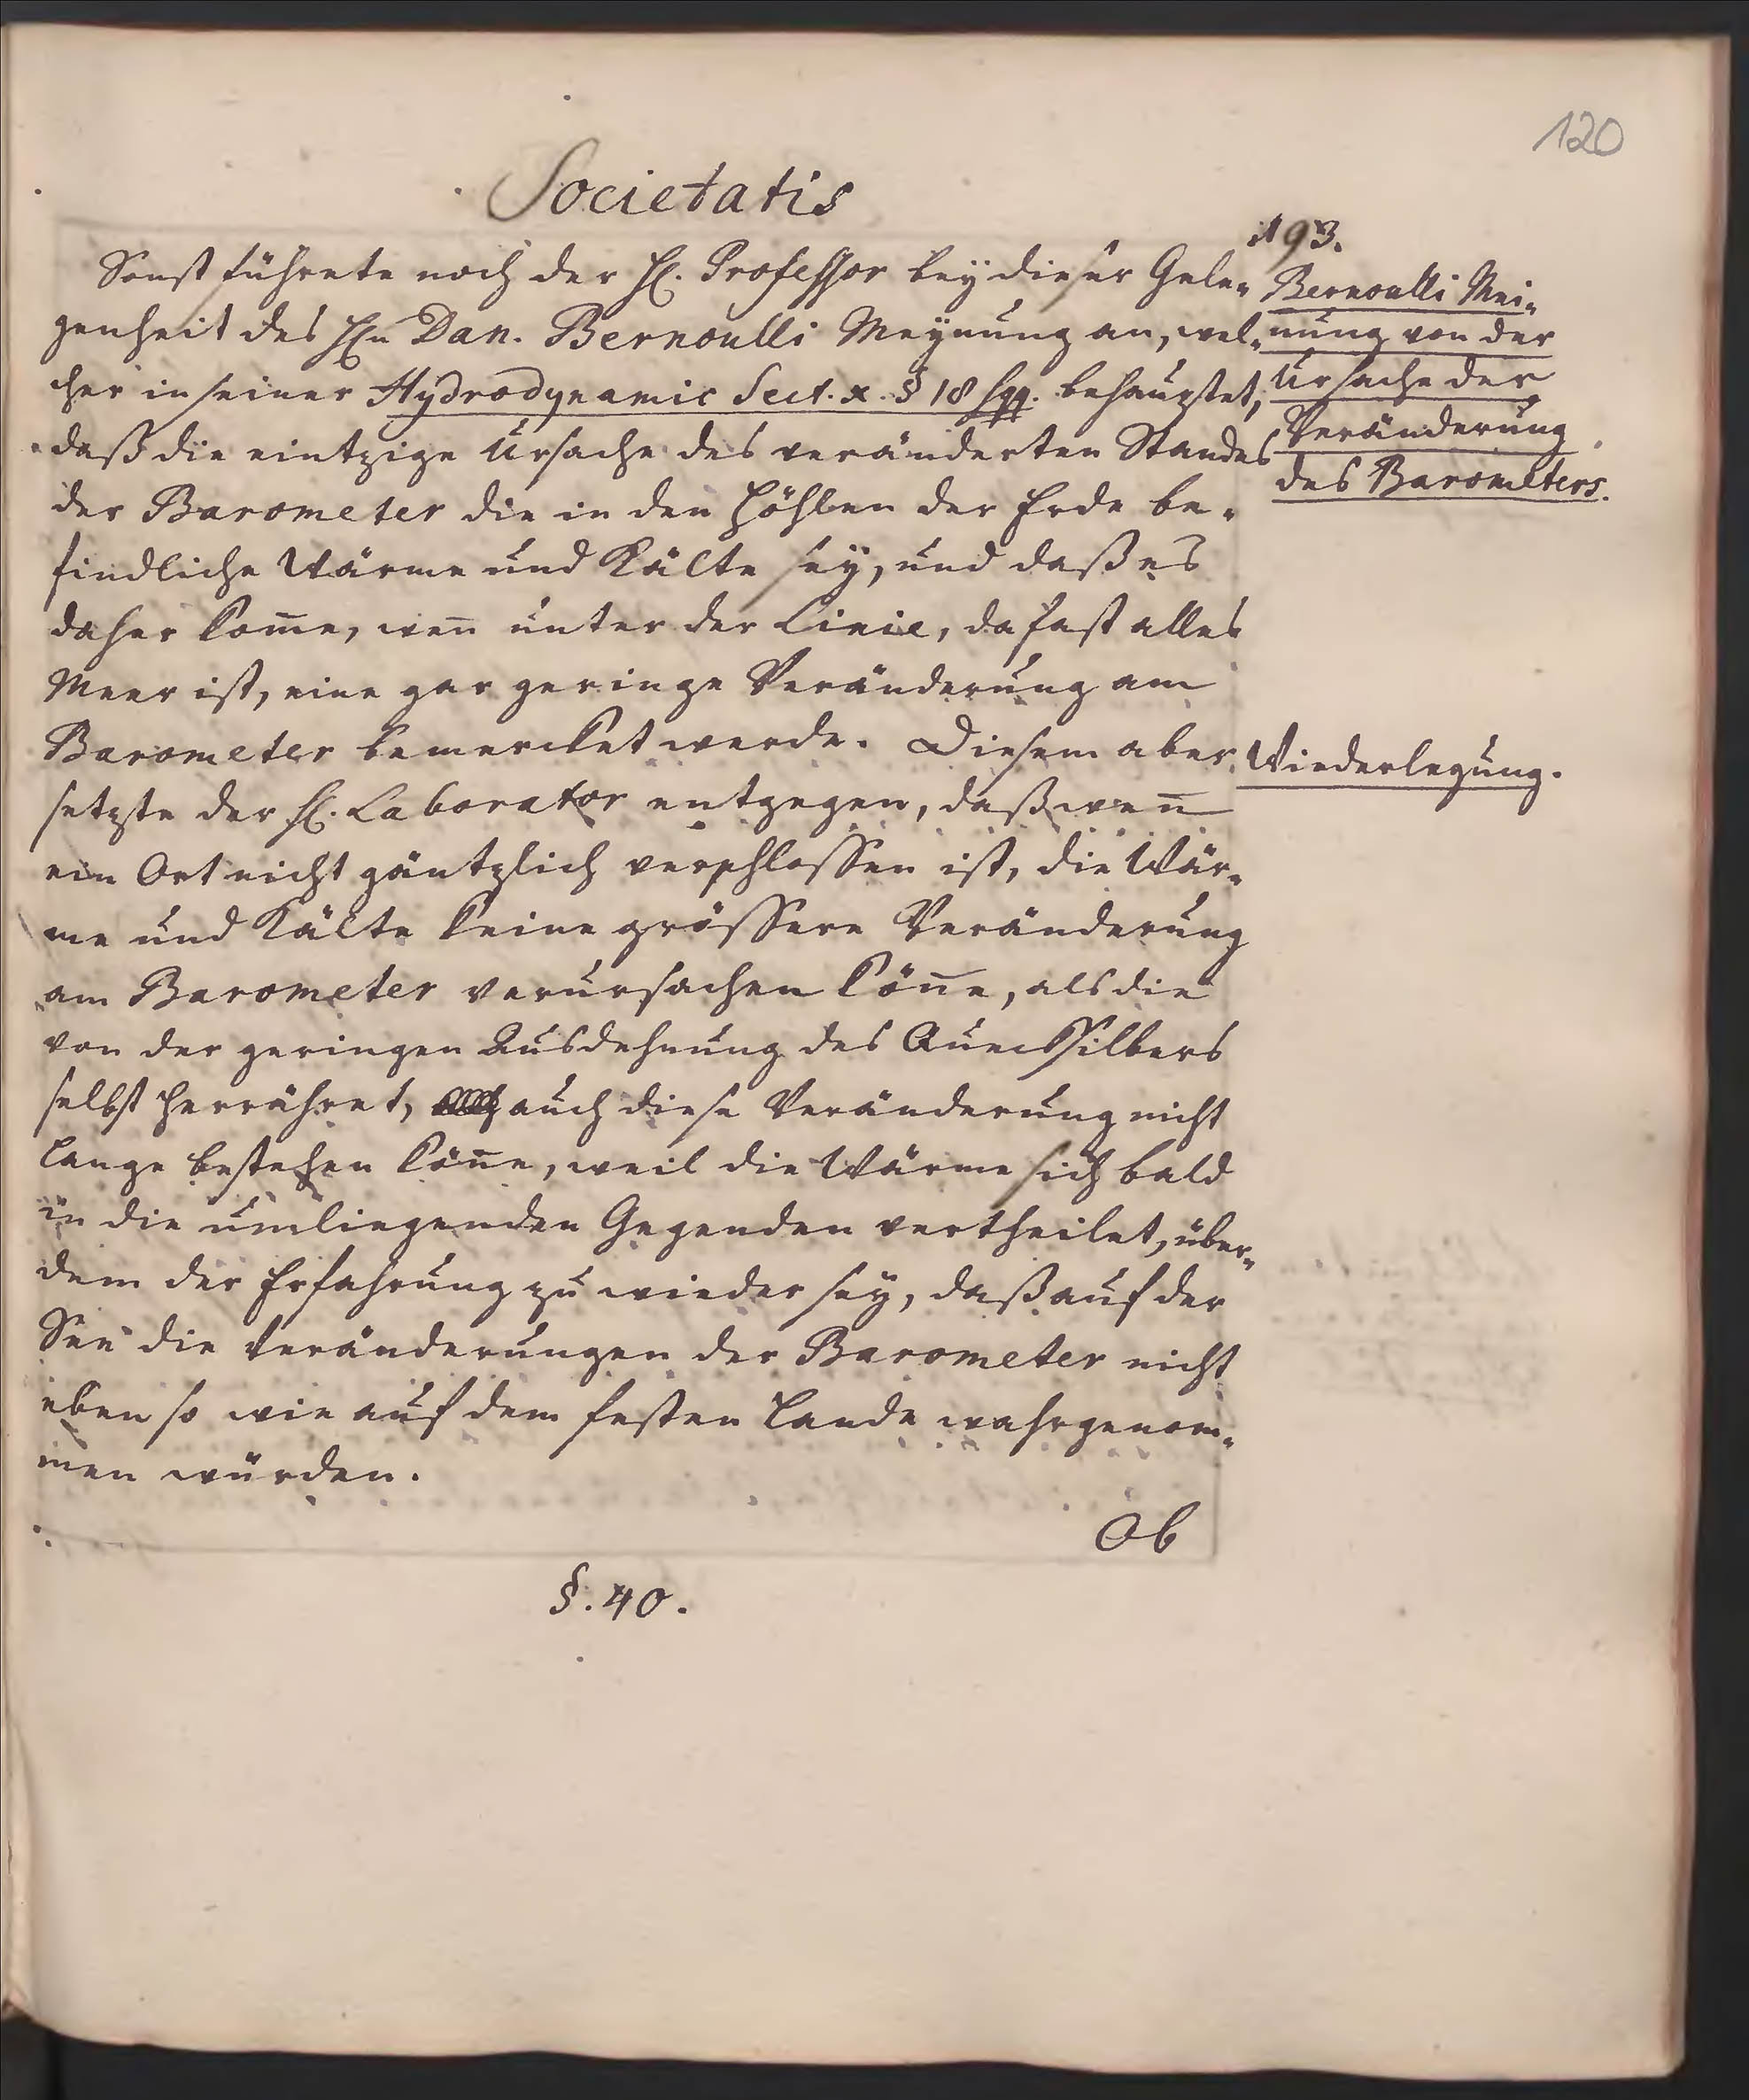 120
Societatis
193.
Sonst führete noch der H. Professor bey dieser Gele-
genheit des Hn Dan. Bernoulli Meynung an, wel-
cher in seiner Hydrodynamic Sect. X. § 18 sqq. behauptet,
daß die eintzige Ursache des veränderten Standes
der Barometer die in den Höhlen der Erde be-
findliche Wärme und Kälte sey, und daß es
daher kom̅e, wen̅ unter der Linie, da fast alles
Meer ist, eine gar geringe Veränderung am
Barometer bemercket werde. Diesem aber
setzte der H. Laborator entgegen, daß wen̅
ein Ort nicht gäntzlich verschlossen ist, die Wär-
me und Kälte keine grössere Veränderung
am Barometer verursachen kön̅e, als die
von der geringen Ausdehnung des Quecksilbers
selbst herrühret, auch diese Veränderung nicht
lange bestehen kön̅e, weil die Wärme sich bald
in die umliegenden Gegenden vertheilet, über-
dem der Erfahrung zu wieder sey, daß auf der
See die Veränderungen der Barometer nicht
eben so wie auf dem festen Lande wahrgenom-
men würden.
Ob
§. 40.
Bernoulli Mei-
nung von der
Ursache der
Veränderung
des Barometers.
Wiederlegung.